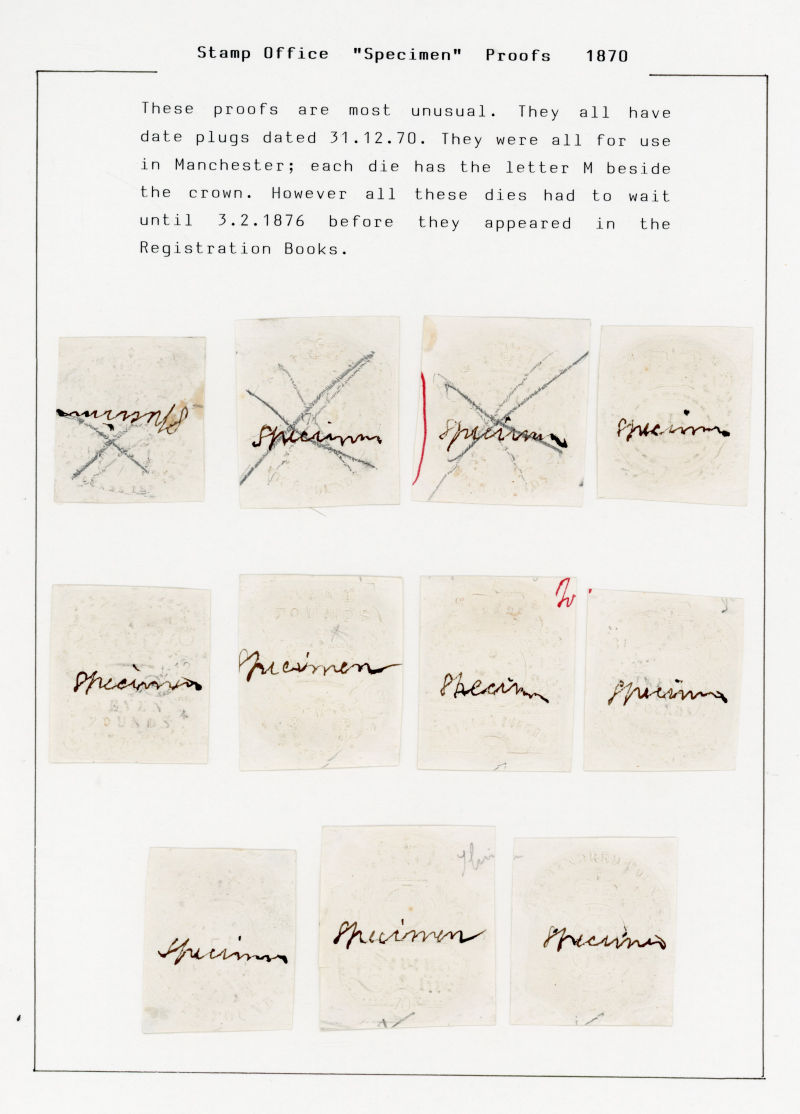 Stamp Office "Specimen" Proofs 1870
These proofs are most unusual. They all have
date plugs dated 31.12.70. They were all for use
in Manchester; each die has the letter M beside
the crown. However all these dies had to wait
until 3.2.1876 before they appeared in the
Registration Books.
Specimen
Specimen
Specimen
Specimen
Specimen
Specimen
Specimen
Specimen
POUNDS
Specimen
Specimen
Specimen